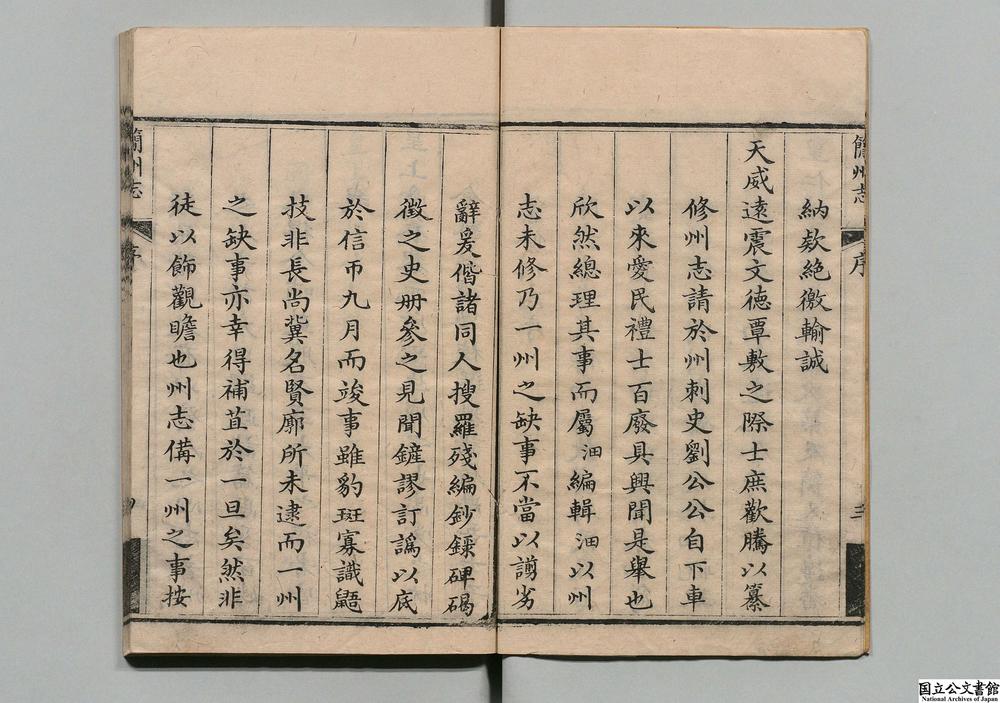 簡州志
序
納欵絶徼輸誠
天威遠震文德覃敷之際士庶歡騰以纂
修州志請於州刺史劉公公自下車
以來愛民禮士百廢具興聞是舉也
欣然總理其事而屬沺編輯沺以州
志未修乃一州之缺事不當以譾劣
辭爰偕諸同人搜羅殘編鈔錄碑碣
徵之史册參之見聞鏟謬訂譌以底
於信帀九月而竣事雖豹斑寡識鼯
技非長尚冀名賢廓所未逮而一州
之缺事亦幸得補苴於一旦矣然非
徒以飾觀瞻也州志備一州之事按
簡州志
序
国立公文書館
National Archives of Japan